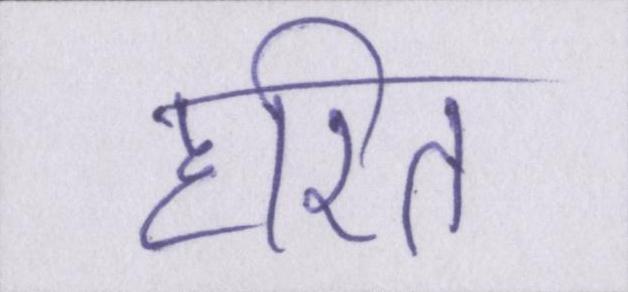 हरित